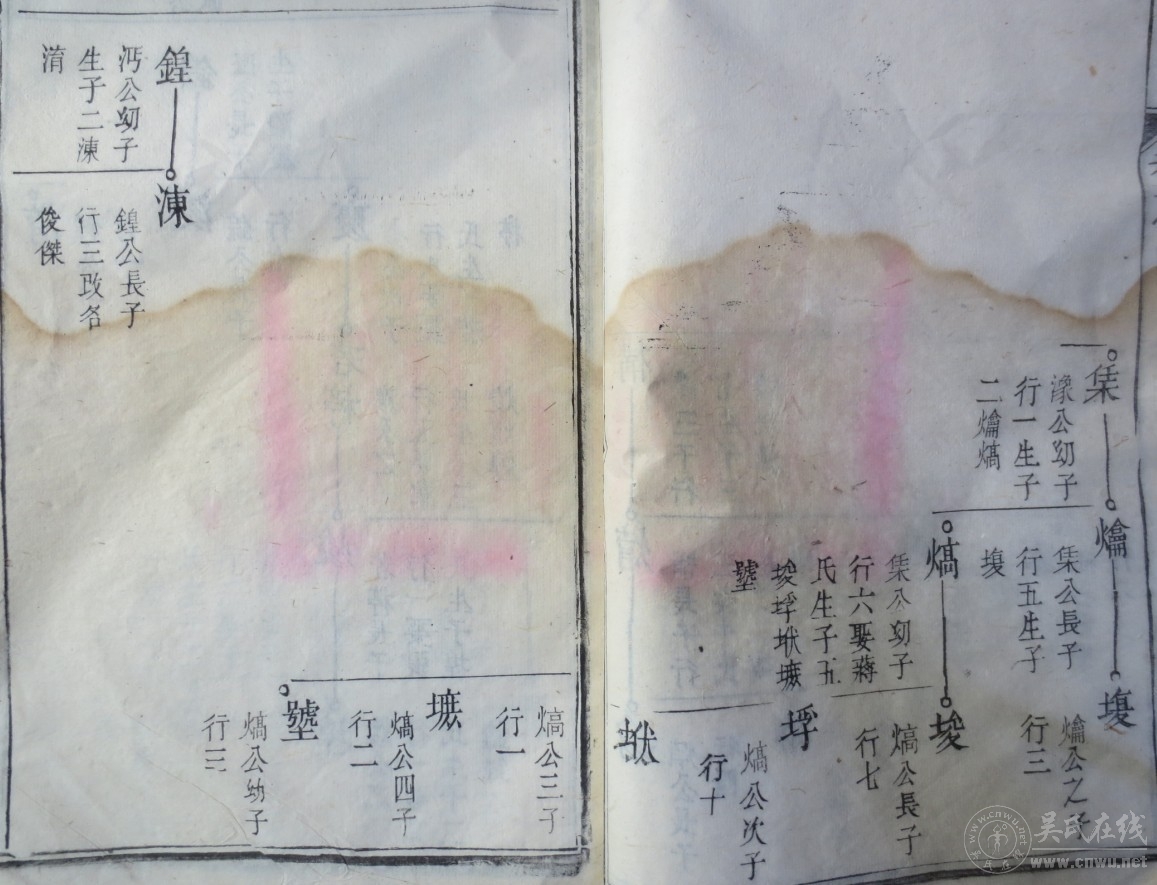 集
濠公幼子
行一生子
二爚熇
爚
集公長子
行五生子
堫
堫
爚公之子
行三
熇
集公幼子
行六娶蔣
氏生子五
埈垺垘㙩
埈
熇公長子
行七
垺
熇公次子
行十
熇公三子
行一
熇公四子
行二
熇公幼子
行三
鍠
沔公幼子
生子二涷
淯
涷
鍠公長子
行三改名
俊傑
吴氏在线
www.cnwu.net